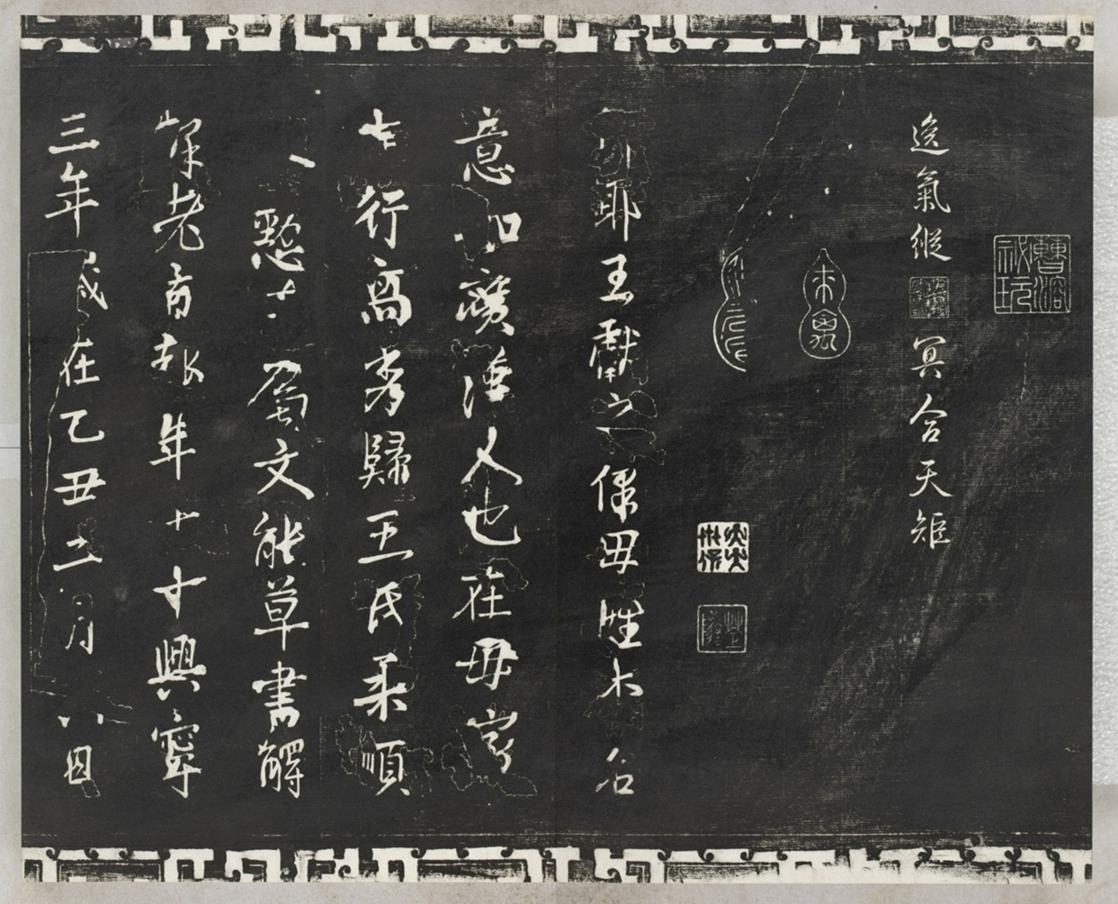 逸氣縱冥合天矩
郎耶王獻之保母姓李名
意如廣漢人也在母家
志行高秀歸王氏柔順
恭懃善屬文能草書解
釋老旨趣年七十興寧
三年歲在乙丑二月六日